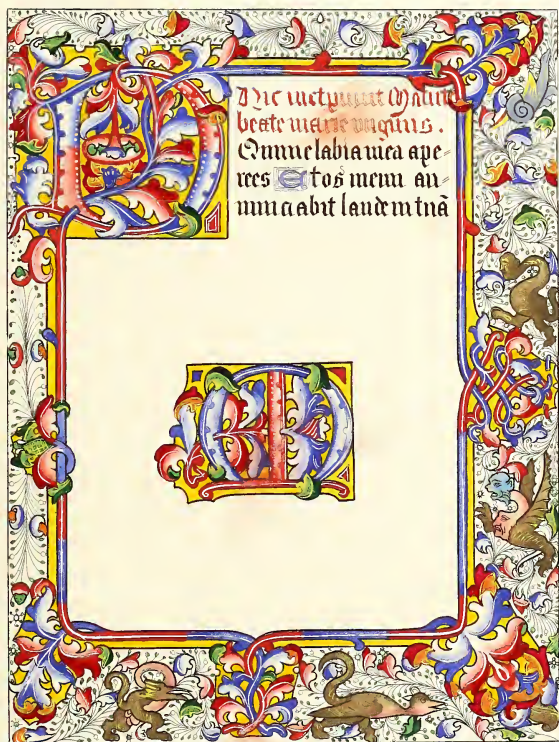 Hic incipiunt Matut
beate marie virginis.
Domine labia mea ape-
ries Et os meum an-
nunciabit laudem tuã